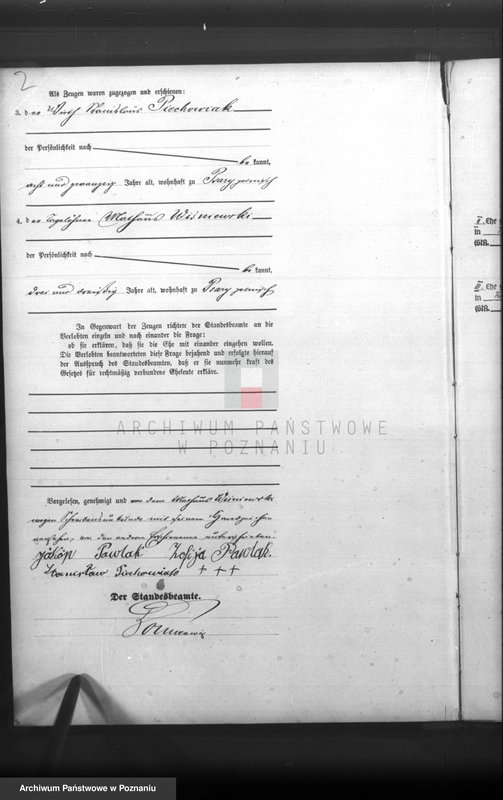 2
Als Zeugen waren zugezogen und erschienen:
3. der Wirth Stanislaus Piechowiak
der Persönlichkeit nach
be kannt,
acht und zwanzig Jahre alt, wohnhaft zu
4. der Tagelöhner Mathäus Wiśniewski
der Persönlichkeit nach
be kannt,
drei und dreißig Jahre alt, wohnhaft zu
In Gegenwart der Zeugen richtete der Standesbeamte an die
Verlobten einzeln und nach einander die Frage:
ob sie erklären, daß sie die Ehe mit einander eingehen wollen.
Die Verlobten beantworteten diese Frage bejahend und erfolgte hierauf
der Ausspruch des Standesbeamten, daß er sie nunmehr kraft des
Gesetzes für rechtmäßig verbundene Eheleute erkläre.
ARCHIWUM PAŃSTWOWE
W POZNANIU
Vorgelesen, genehmigt und von dem Mathäus Wiśniewski
wegen Schreibensunkunde mit seinem Handzeichen
versehen, von den andern Erschienenen unterschrieben.
Jakób Pawlak Zofija Pawlak.
Stanisław Piechowiak + + +
Der Standesbeamte.
II. Ehe
in
III. Ehe
in
Archiwum Państwowe w Poznaniu